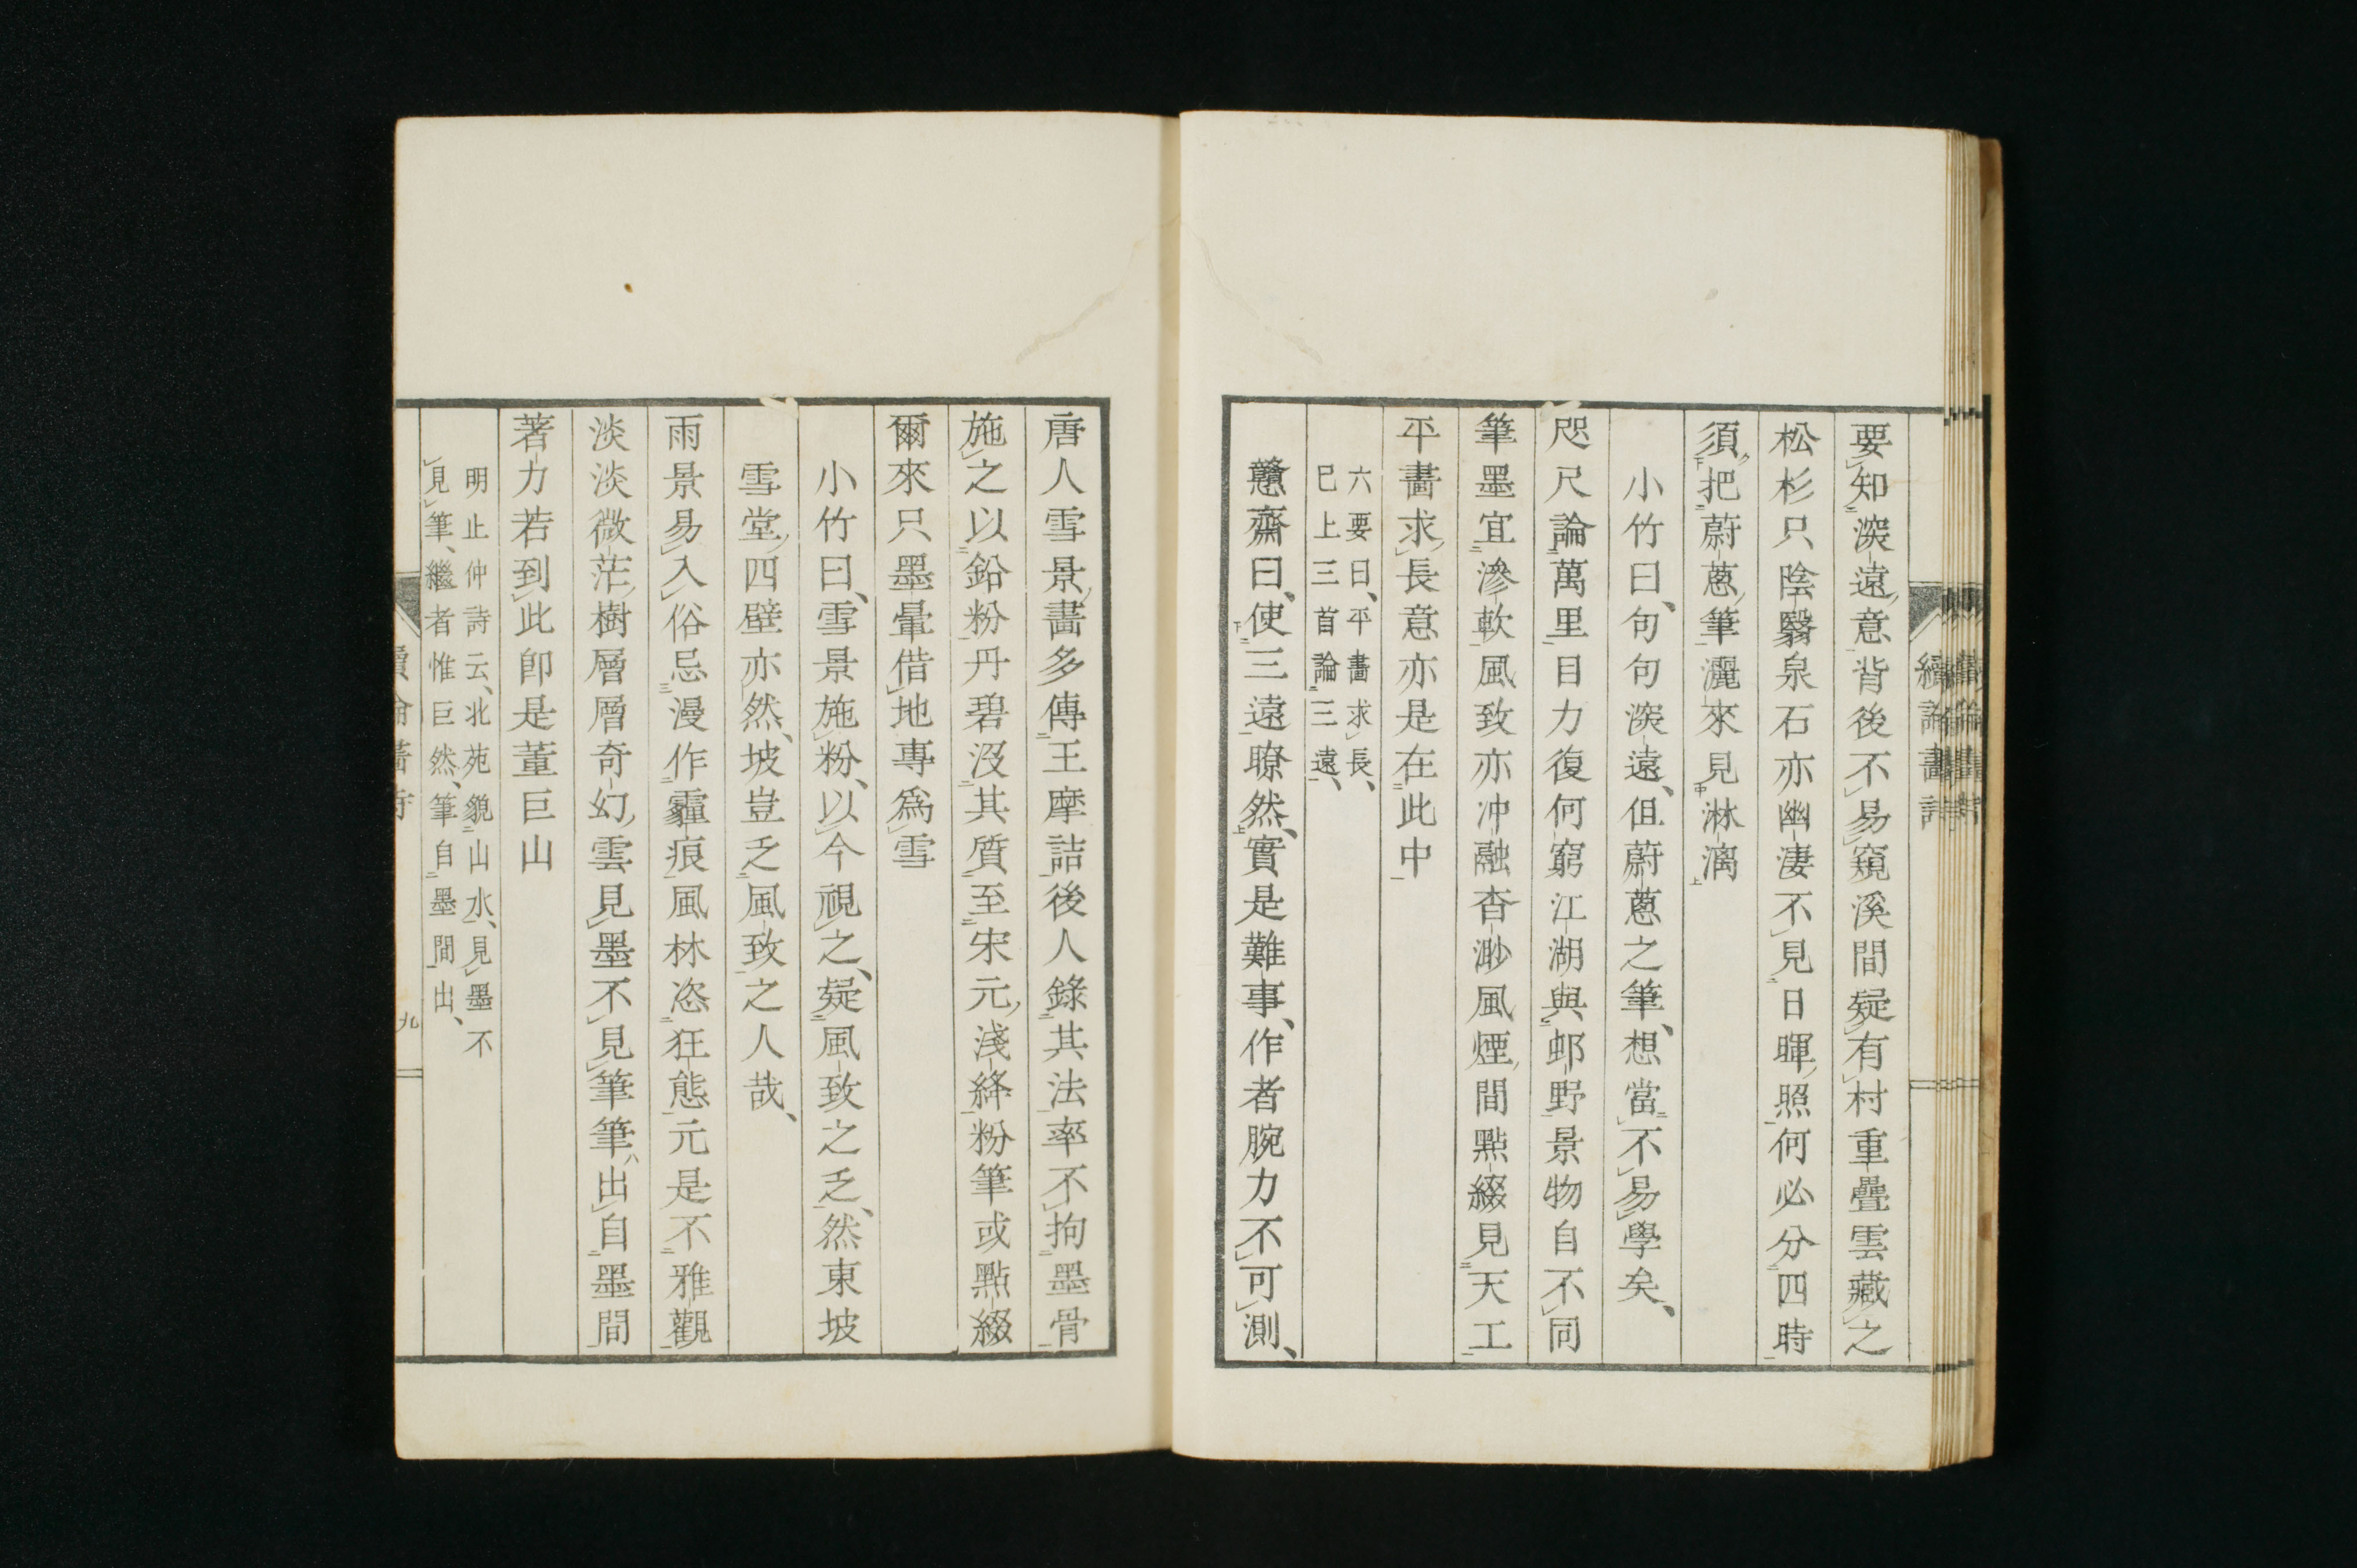 要知深遠意背後不易窺溪間疑有村重疊雲藏之
松杉只陰翳泉石亦幽凄不見日暉照何必分四時
須把蔚蔥筆灑來見淋漓
小竹曰、句句深遠、但蔚蔥之筆、想當不易學矣、
咫尺論萬里目力復何窮江湖與邨野景物自不同
筆墨宜滲軟風致亦冲融杳渺風煙間點綴見天工
平畵求長意亦是在此中
六要曰、平畵求長、
巳上三首論三遠、
戇齋曰、使三遠暸然、實是難事、作者腕力不可測、
唐人雪景畵多傳王摩詰後人錄其法率不拘墨骨
施之以鉛粉丹碧沒其質至宋元淺絳粉筆或點綴
爾來只墨暈借地專爲雪
小竹曰、雪景施粉、以今視之、疑風致之乏、然東坡
雪堂四壁亦然、坡豈乏風致之人哉、
雨景易入俗忌漫作霾痕風林恣狂態元是不雅觀
淡淡微茫樹層層奇幻雲見墨不見筆筆出自墨間
著力若到此卽是董巨山
明止仲詩云、北苑貌山水、見墨不
見筆、繼者惟巨然、筆自墨間出、
續論畵詩
九